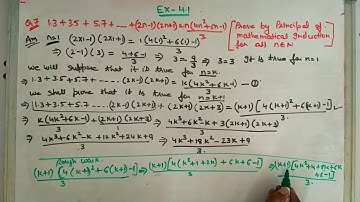 Ex - 4.1
Q.7 1.3 + 3.5 + 5.7 + .... + (2n-1)(2n+1) = n(4n²+6n-1)/3 [Prove by Principal of mathematical Induction for all n∈N
Ans n=1 (2×1-1)(2×1+1) = 1(4(1)²+6(1)-1)/3
⇒ (2-1)(3) = 4+6-1/3 ⇒ 3 = 9/3 ⇒ 3=3 It is true for n=1
we will suppose that it is true for n=k
⇒ 1.3+3.5+5.7+.... +(2k-1)(2k+1) = k(4k²+6k-1)/3 -①
we shall prove that it is true for n=k+1
⇒ 1.3+3.5+5.7 ... (2k-1)(2k+1)+(2k+1)(2k+3) = (k+1)[4(k+1)²+6(k+1)-1]/3
⇒ k(4k²+6k-1)/3 + (2k+1)(2k+3) ⇒ 4k³+6k²-k+3(2k+1)(2k+3)/3
⇒ 4k³+6k²-k+12k²+24k+9/3 ⇒ 4k³+18k²-23k+9/3
Rough work
(k+1)[4(k+1)²+6(k+1)-1]/3 ⇒ (k+1)[4(k²+1+2k)+6k+6-1]/3 ⇒ (k+1)[4k²+4+8k+6k+6-1]/3